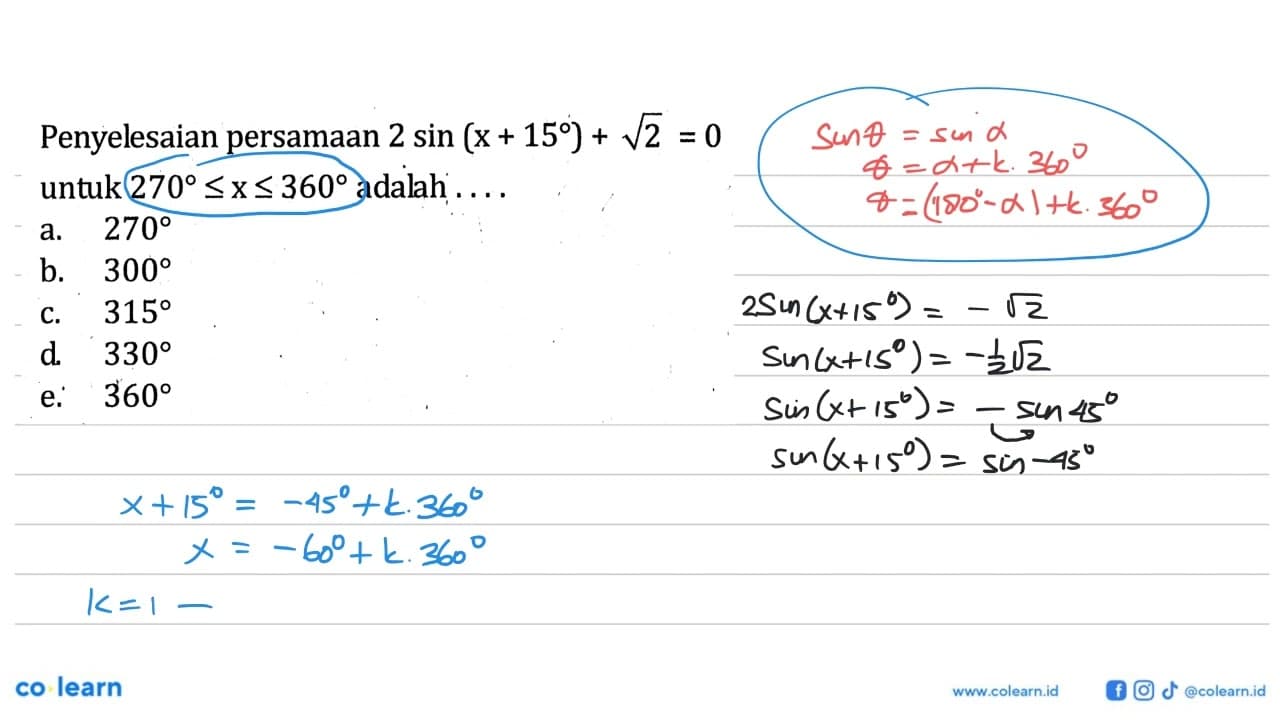 Penyelesaian persamaan 2 sin (x + 15°) + √2 = 0
untuk 270° ≤ x ≤ 360° adalah . . . .
a. 270°
b. 300°
c. 315°
d. 330°
e. 360°
Sin θ = sin α
θ = α + k. 360°
θ = (180° - α) + k. 360°
2 Sin (x + 15°) = - √2
Sin (x + 15°) = - 1/2 √2
Sin (x + 15°) = - sin 45°
sin (x + 15°) = sin -45°
x + 15° = -45° + k. 360°
x = -60° + k. 360°
k = 1 —
co learn
www.colearn.id
@colearn.id